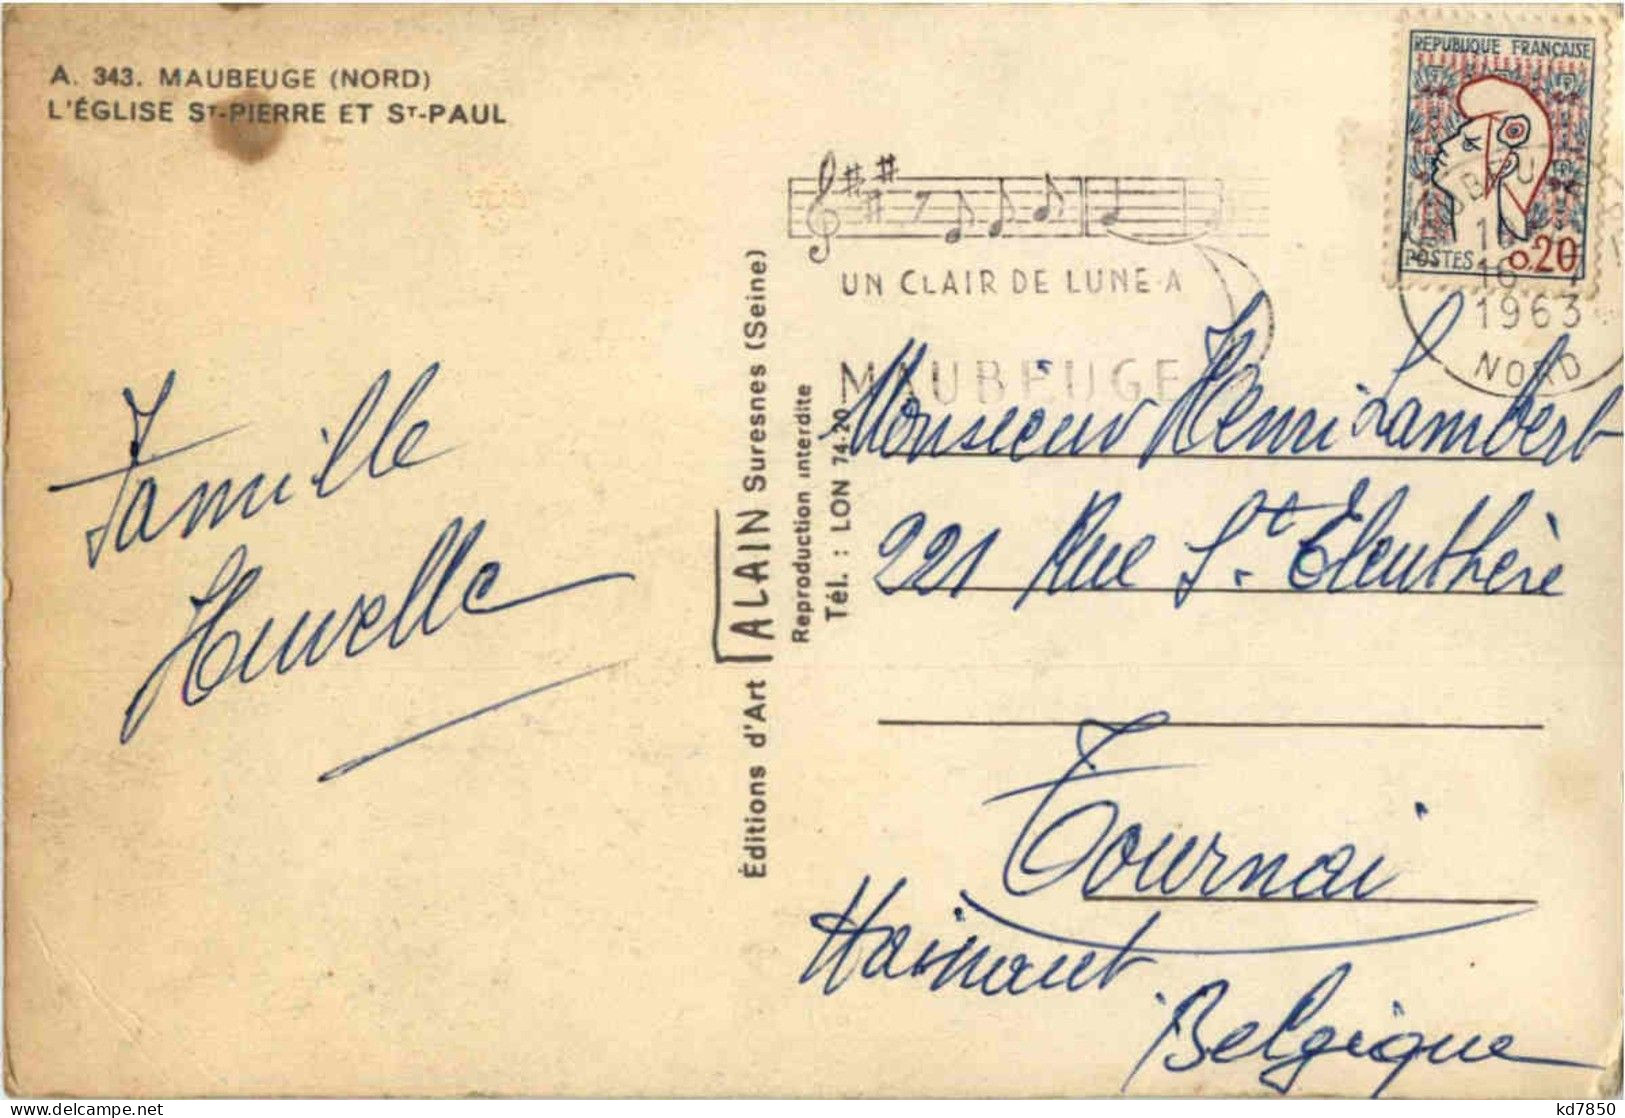 A. 343. MAUBEUGE (NORD)
L'ÉGLISE ST-PIERRE ET ST-PAUL
Famille
Huvelle
Éditions d'Art ALAIN Suresnes (Seine)
Reproduction interdite
Tél. : LON 74-20
UN CLAIR DE LUNE A
MAUBEUGE
REPUBLIQUE FRANCAISE
POSTES 0,20
1963
NORD
Monsieur Henri Lambert
221 Rue St. Eleuthère
Tournai
Hainaut
Belgique
kd7850